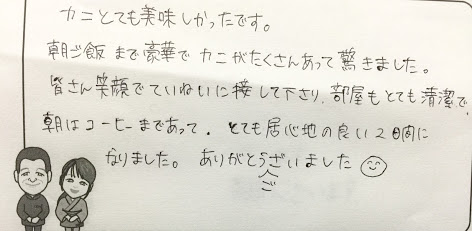 カニとても美味しかったです。
朝ご飯まで豪華でカニがたくさんあって驚きました。
皆さん笑顔でていねいに接して下さり、部屋もとても清潔で、
朝はコーヒーまであって、とても居心地の良い2日間に
なりました。ありがとうございました